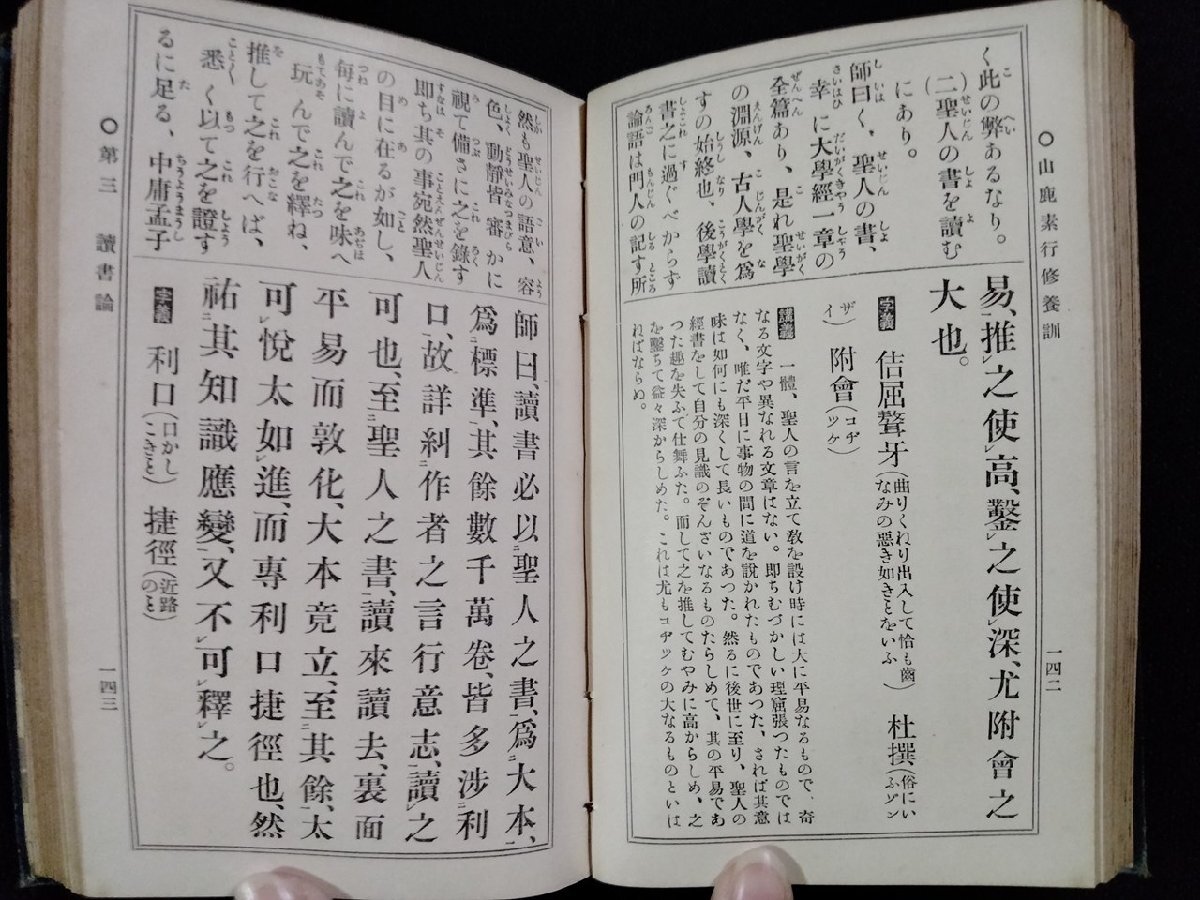 ○山鹿素行修養訓
一四二
く此の弊あるなり。
(二)聖人の書を讀む
にあり。
師曰く、聖人の書、
幸に大學經一章の
全篇あり、是れ聖學
の淵源、古人學を爲
すの始終也、後學讀
書之に過ぐべからず
論語は門人の記す所
易、推之使高、鑿之使深、尤附會之
大也。
字義 佶屈聱牙(曲りくねり出入して恰も齒なみの惡き如きをいふ) 杜撰(俗にいふゾン
ザイ) 附會(コヂツケ)
講義 一體、聖人の言を立て敎を設け時には大に平易なるもので、奇
なる文字や異なれる文章はない。即ちむづかしい理窟張つたものでは
なく、唯だ平日に事物の間に道を說かれたものであつた、されば其意
味は如何にも深くして長いものであつた。然るに後世に至り、聖人の
經書をして自分の見識のぞんざいなるものたらしめて、其の平易であ
つた趣を失ふて仕舞ふた。而して之を推してむやみに高からしめ、之
を鑿ちて益々深からしめた。これは尤もコヂツケの大なるものといは
ねばならぬ。
然も聖人の語意、容
色、動靜皆審かに
視て備さに之を錄す
即ち其の事宛然聖人
の目に在るが如し、
每に讀んで之を味へ
玩んで之を繹ね、
推して之を行へば、
悉く以て之を證す
るに足る、中庸孟子
師曰、讀書必以聖人之書、爲大本、
爲標準、其餘數千萬卷、皆多涉利
口、故詳糾作者之言行意志、讀之
可也、至聖人之書、讀來讀去、裏面
平易而敦化、大本竞立、至其餘、太
可悅太如進、而專利口捷徑也、然
祐其知識應變、又不可釋之。
字義 利口(口かしこきこと) 捷徑(近路のこと)
○第三 讀書論
一四三